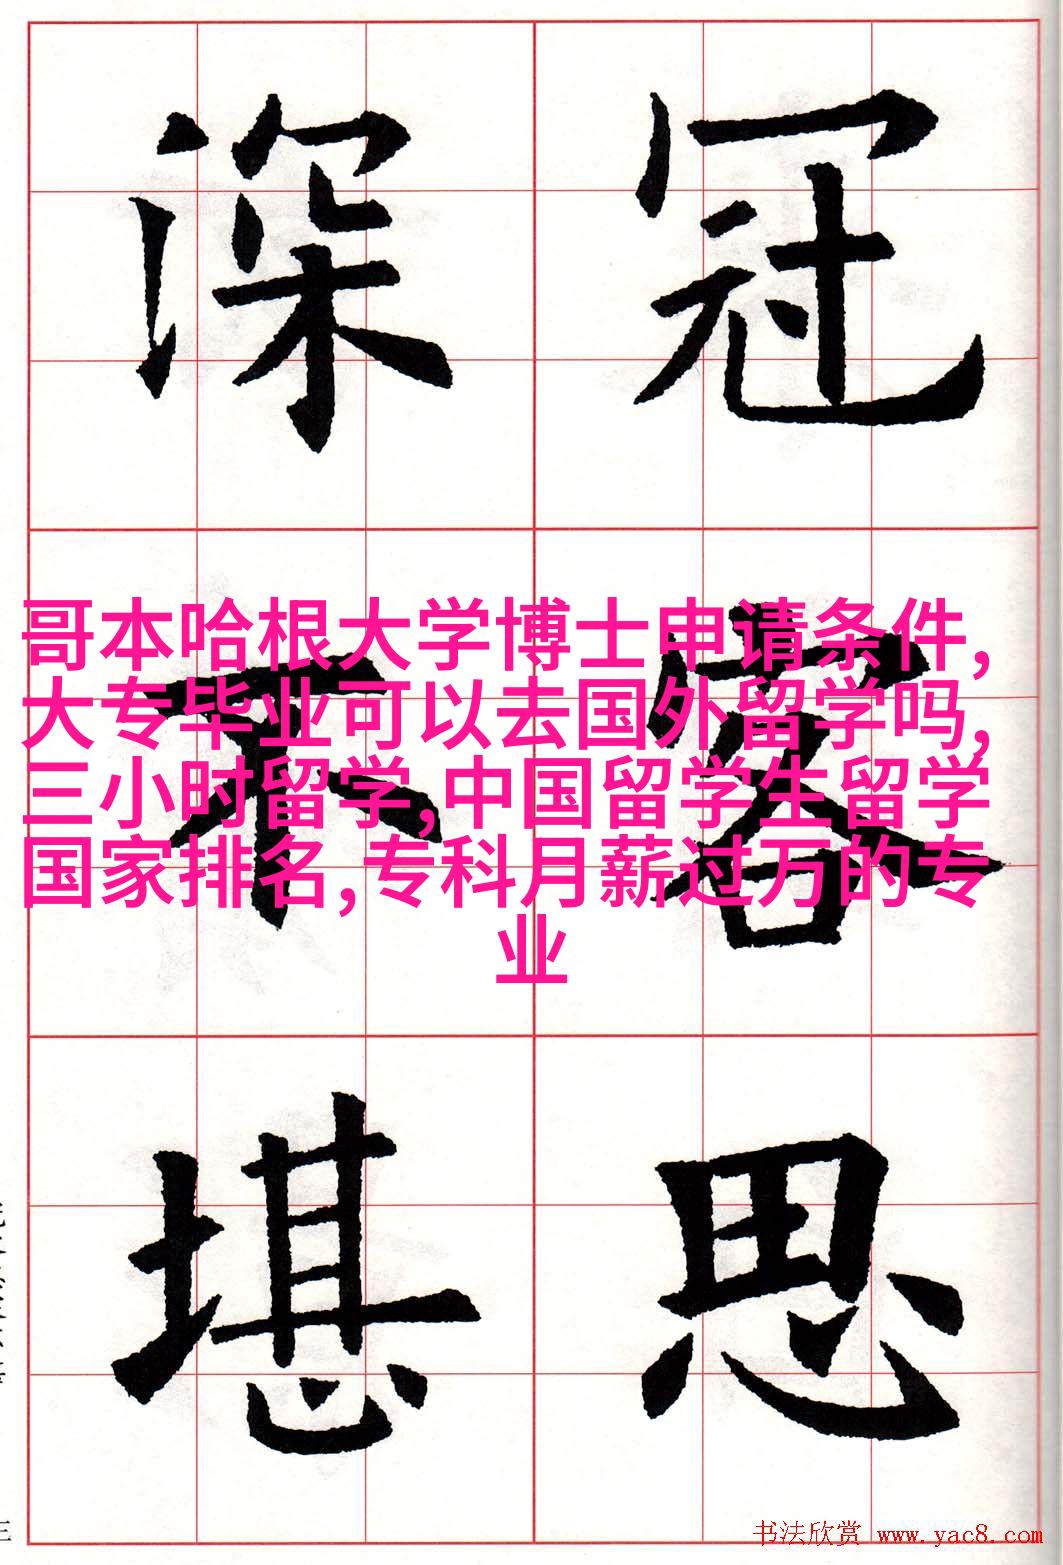 深 冠
哥本哈根大学博士申请条件,
大专毕业可以去国外留学吗,
三小时留学,中国留学生留学
国家排名,专科月薪过万的专
业
不 容
堪 思
三
书法欣赏 www.yac8.com